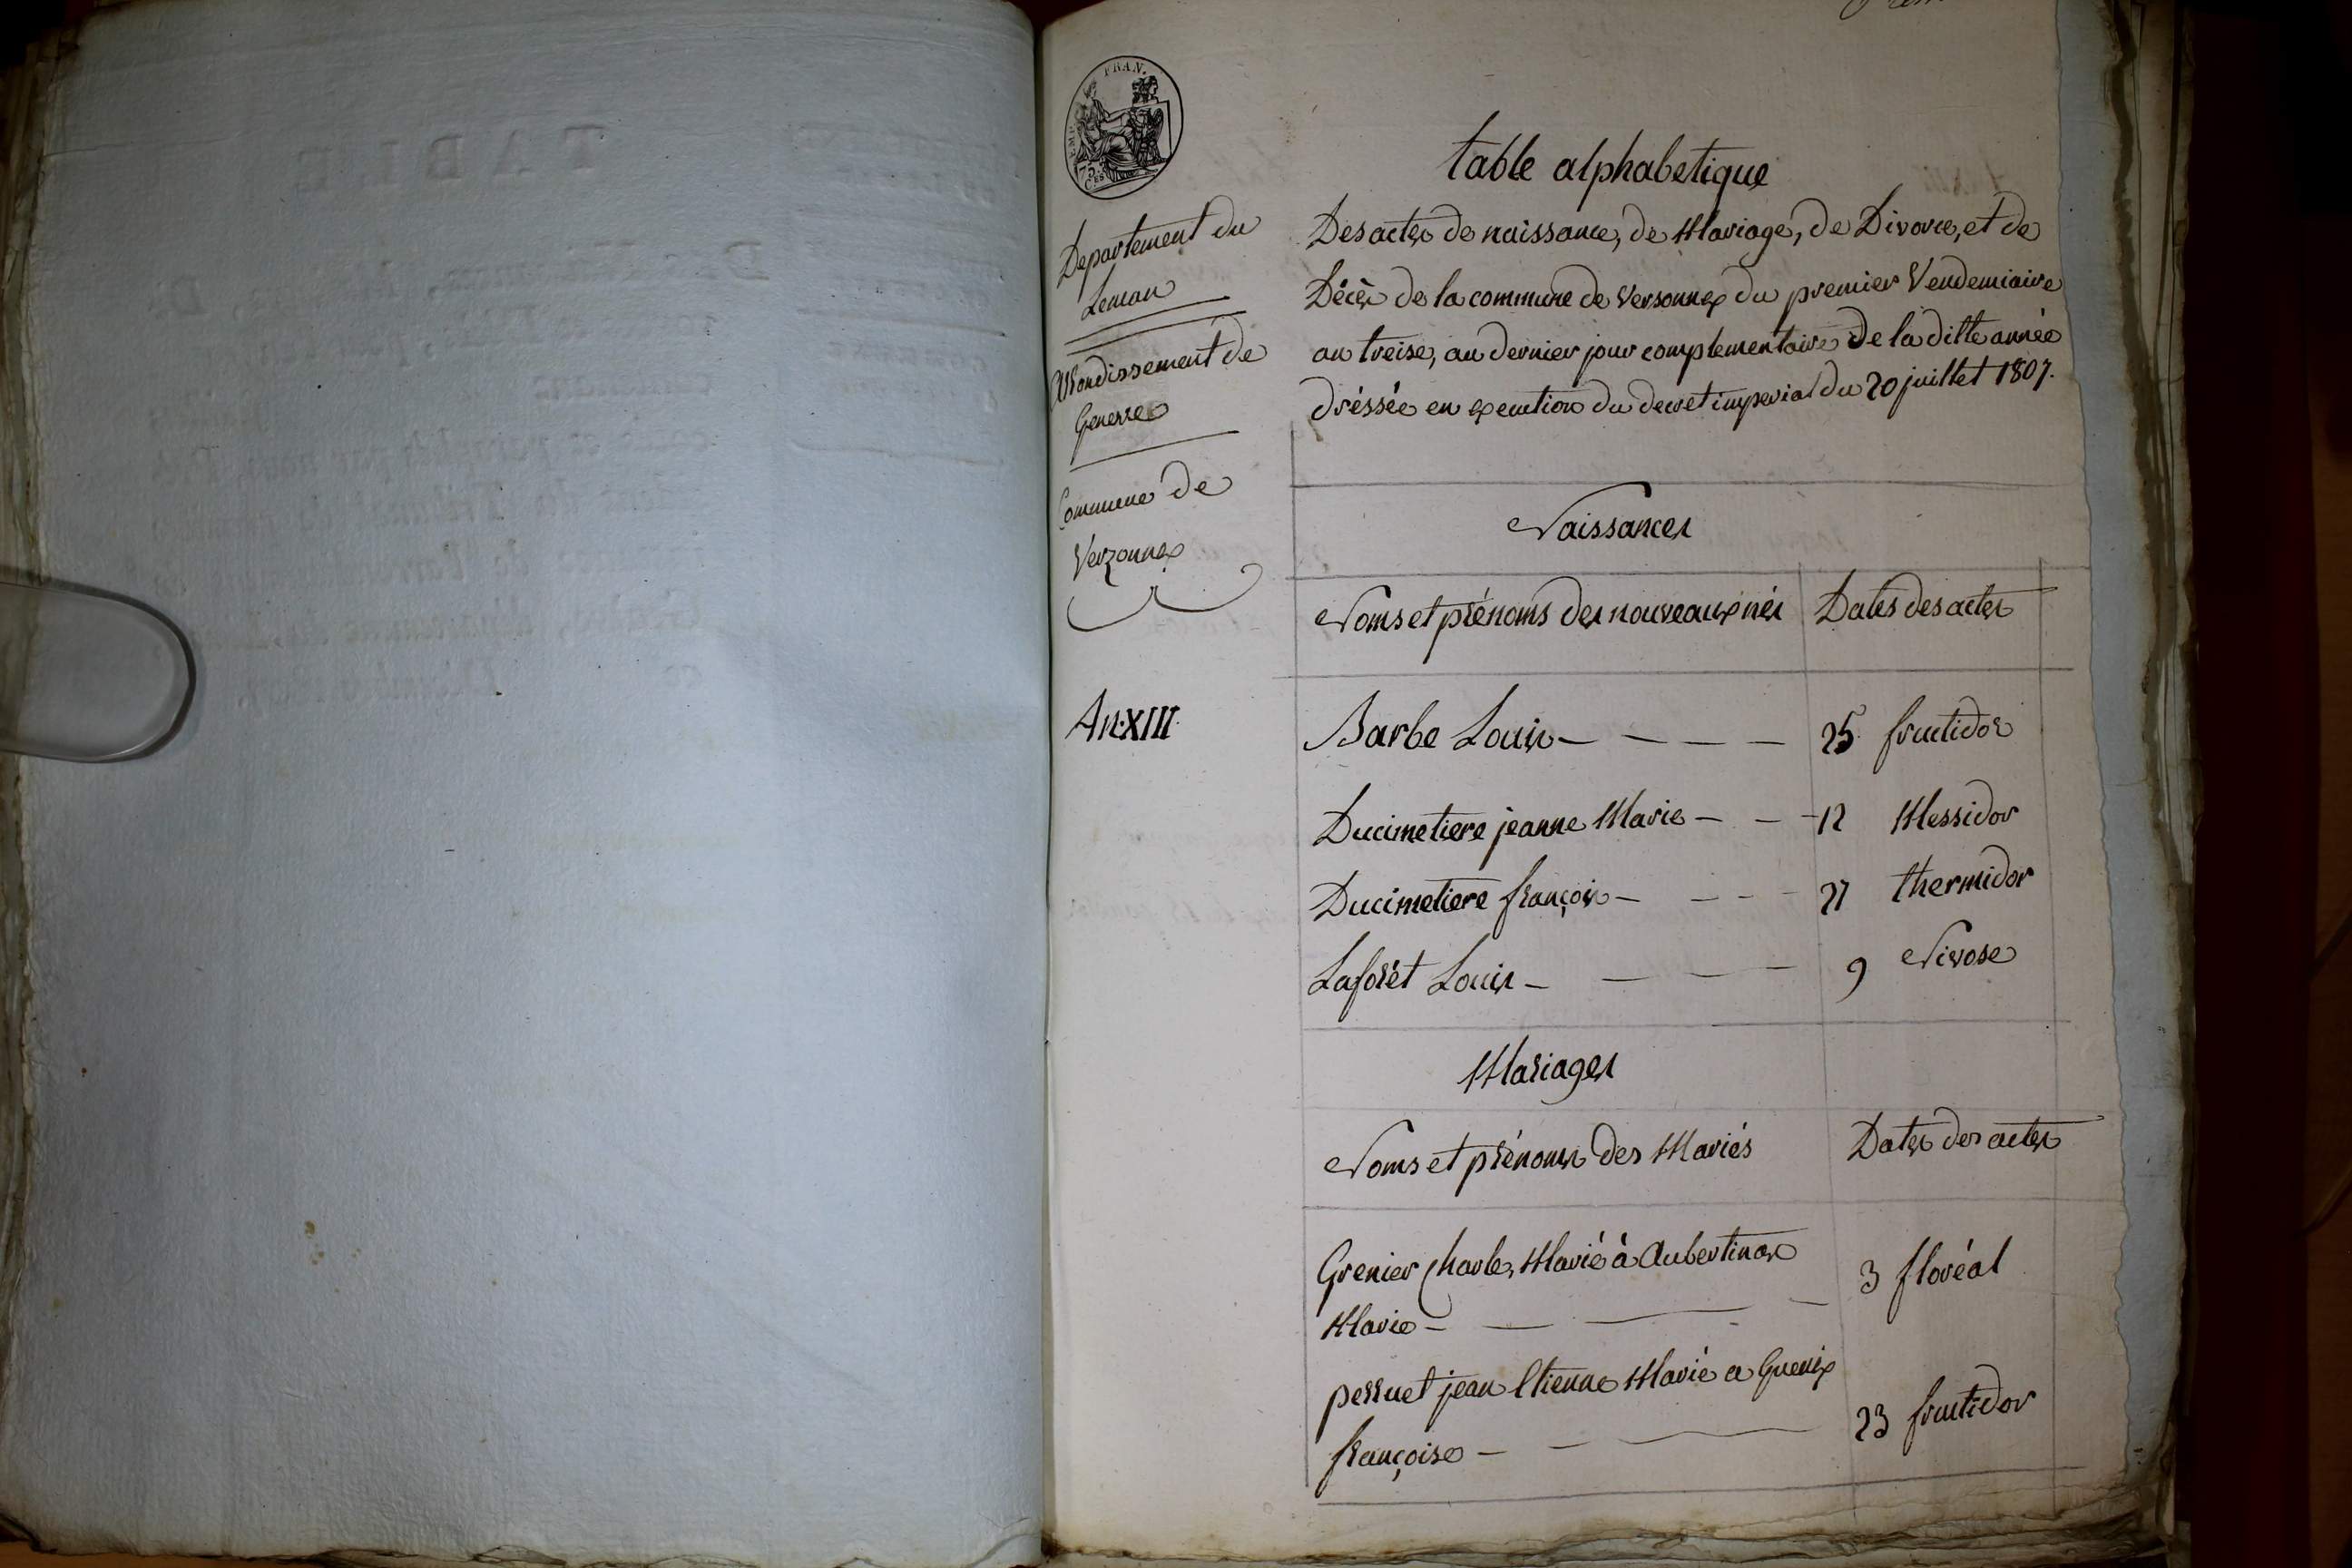 FRAN.
EMP.
75.
CES
table alphabetique
Departement du
Leman
Arrondissement de
Genesve
Commune de
Verzonnex
Des actes de naissance, de Mariage, de Divorce, et de
Décès de la commune de Versonnex du premier Vendemiaire
an treise, au dernier jour complementaire de la ditte année
dréssée en execution du decret imperial du 20 juillet 1807.
Naissances
Noms et prénoms des nouveaux nés Dates des actes
An XIII
Barbe Louis - - - - 25 fructidor
Ducimetiere jeanne Marie - - - 12 Messidor
Ducimetiere françois - - - - 27 thermidor
Laforêt Louis - - - - 9 Nivose
Mariages
Noms et prénoms des Mariés Dates des actes
Grenier Charles Marié à Aubertin
Marie - - - - 3 floréal
perruet jean Etienne Marié a Guenix
françoise - - - 23 fructidor